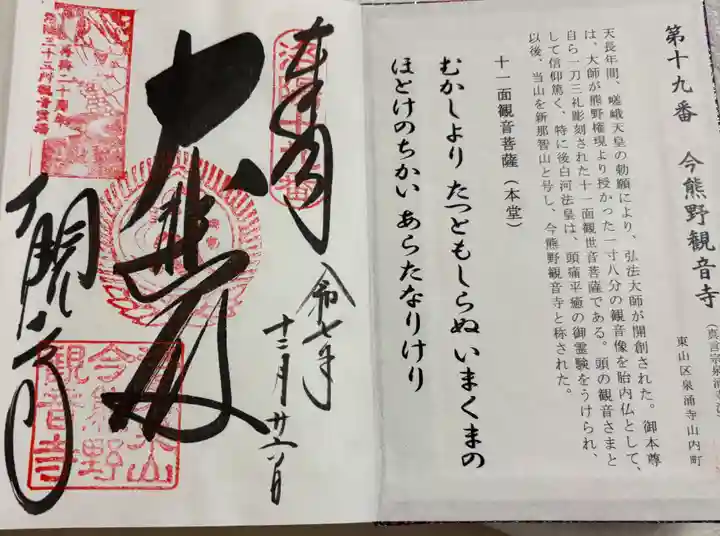 第十九番 今熊野観音寺
東山区泉涌寺山内町
天長年間、嵯峨天皇の勅願により、弘法大師が開創された。御本尊
は、大師が熊野権現より授かった一寸八分の観音像を胎内仏として、
自ら一刀三礼彫刻された十一面観世音菩薩である。頭の観音さまと
して信仰篤く、特に後白河法皇は、頭痛平癒の御霊験をうけられ、
以後、当山を新那智山と号し、今熊野観音寺と称された。
十一面観音菩薩(本堂)
むかしより たつともしらぬ いまくまの
ほとけのちかい あらたなりけり
奉拝
洛陽十九番
令和七年
十二月廿六日
大悲殿
観音寺
再興二十周年
洛陽三十三所観音霊場
今熊野
観音寺